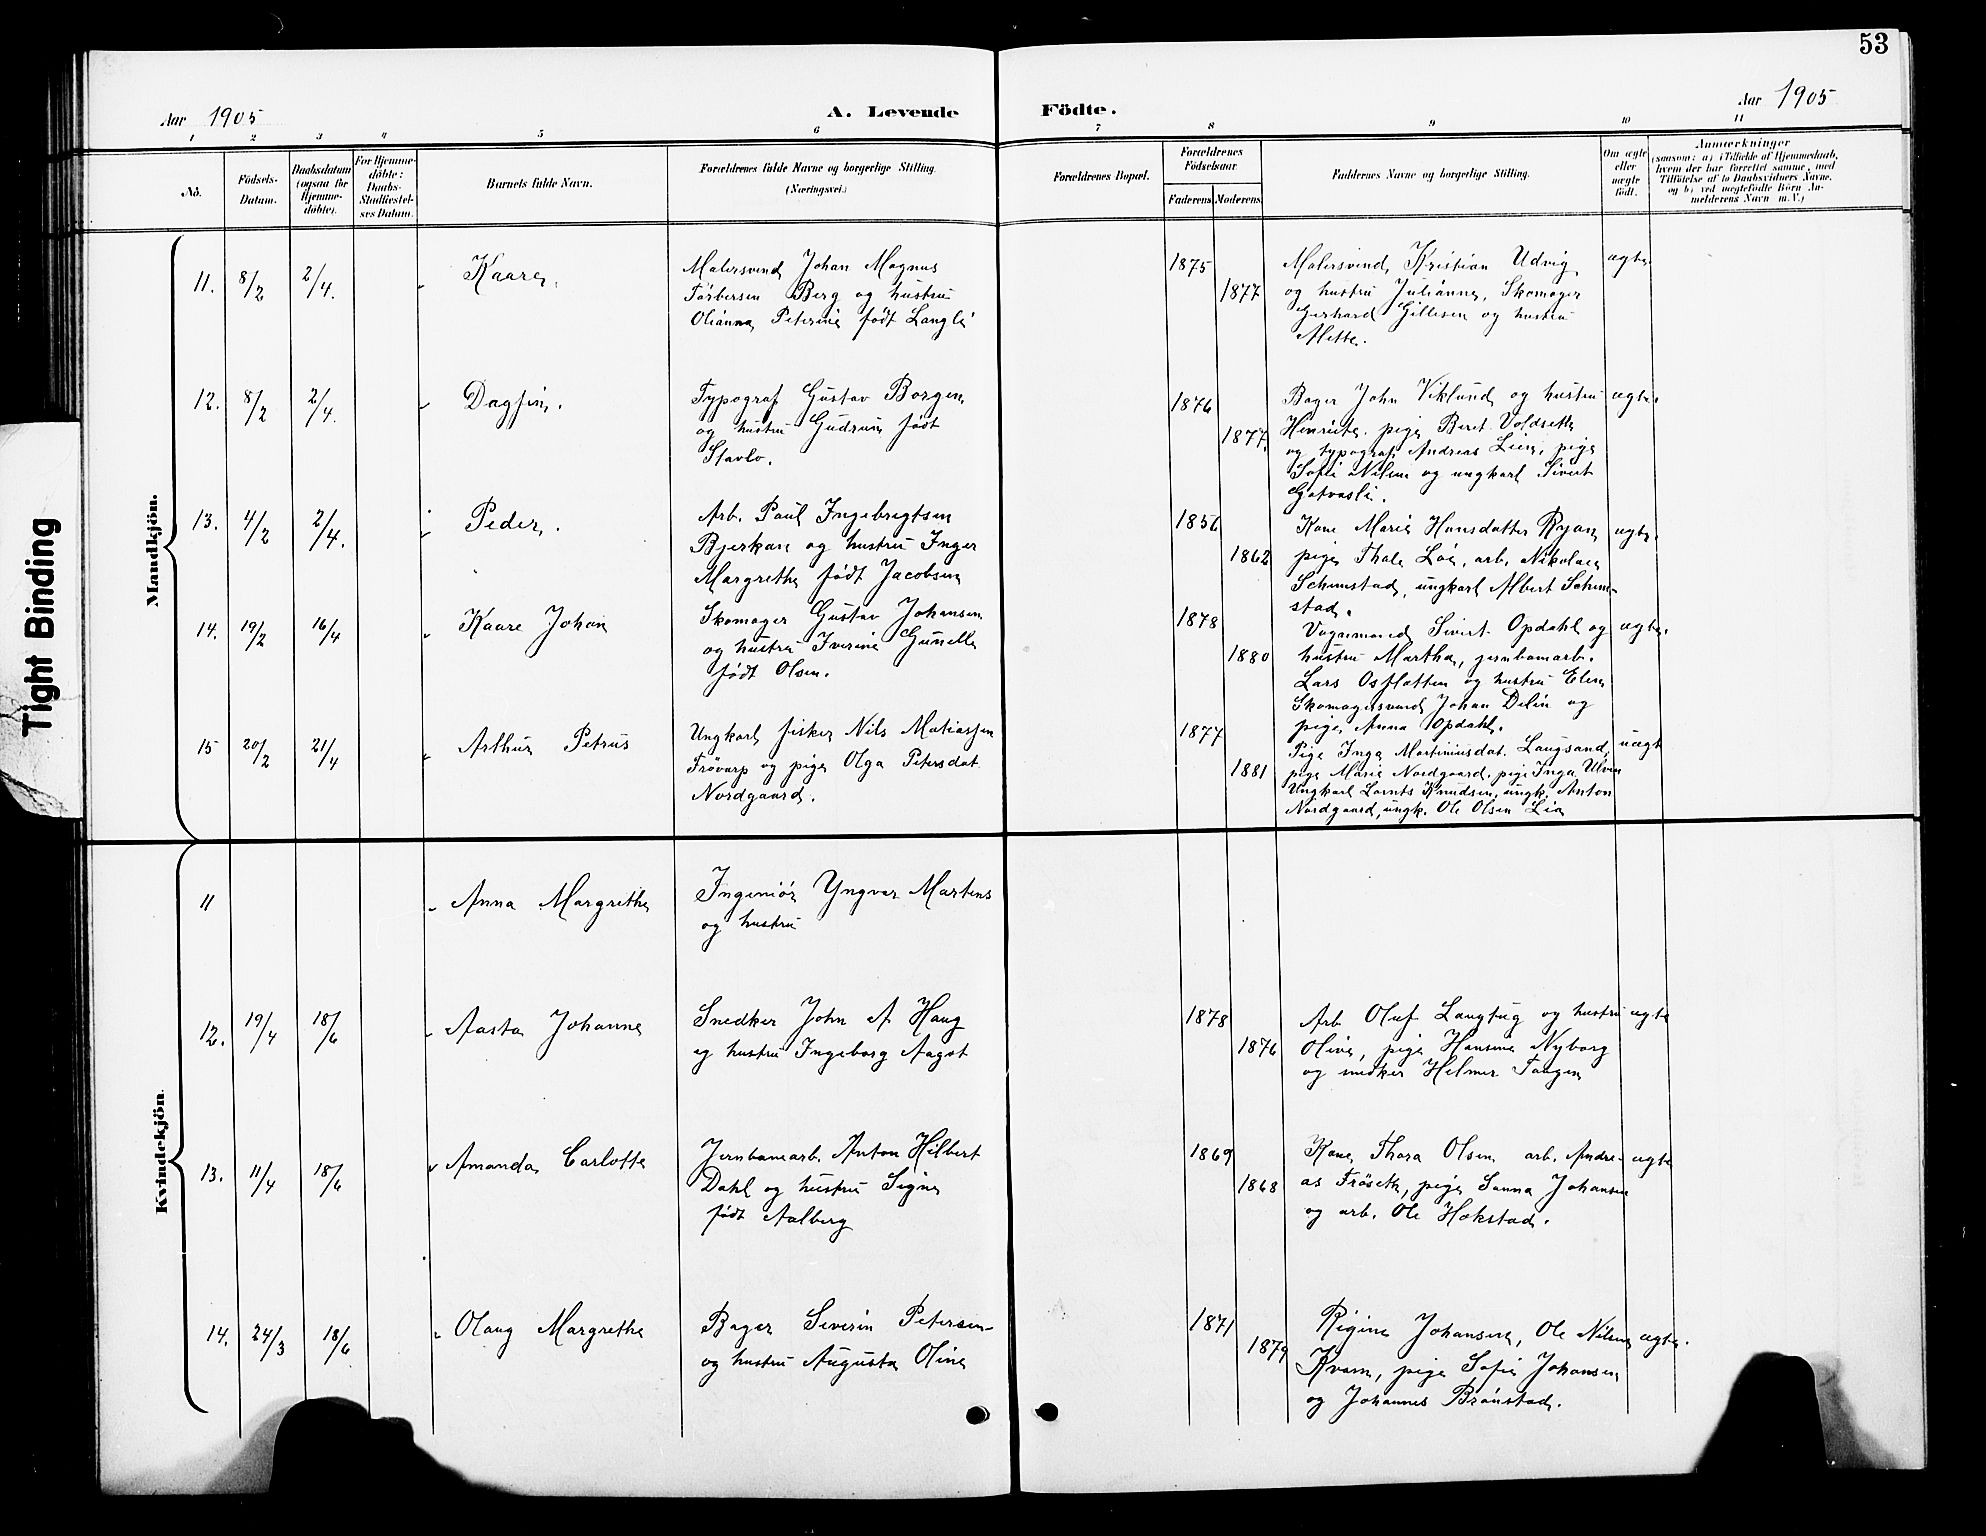 53
Aar 1905
A. Levende Födte.
Aar 1905
1 2 3 4 5 6 7 8 9 10 11
No.
Födsels-Datum.
Daabsdatum (ogsaa for Hjemme-döbte).
For Hjemme-döbte: Daabs-Stadfæstel-ses Datum.
Barnets fulde Navn.
Forældrenes fulde Navne og borgerlige Stilling. (Næringsvei.)
Forældrenes Bopæl.
Forældrenes Födselsaar
Faderens Moderens
Faddernes Navne og borgerlige Stilling.
Om ægte eller uægte födt.
Anmærkninger
(saasom: a) i Tilfælde af Hjemmedaab,
hvem der har forrettet samme, med
Tilföielse af to Daabsvidners Navne,
og b) ved uægtefödte Börn An-
melderens Navn m. V.)
Mandkjön.
11. 8/2 2/4. Kaare.
Malersvend Johan Magnus
Torbersen Berg og hustru
Olianna Petrine født Langli
1875
1877
Malersvend Kristian Udvig
og hustru Julianne, Skomager
Gerhard Gillesen og hustru
Mette.
ægte
12. 8/2 2/4. Dagfin.
Typograf Gustav Borgen
og hustru Gudrun født
Stavlo.
1876
1877.
Bager John Viklund og hustru
Henriete. pige Beret Voldseth
og typograf Andreas Lien, pige
Sofie Nilsen og ungkarl Sivert
ægte.
13. 4/2 2/4. Peder.
Arb. Paul Ingebrigtsen
Bjerkan og hustru Inger
Margrethe født Jacobsen
1856
1862
Kone Marie Hansdatter Ryan
pige Thale Løe, arb. Nikolai
Schmstad, ungkarl Albert Schm-
stad.
ægte.
14. 19/2 16/4 Kaare Johan
Skomager Gustav Johansen
og hustru Iverine Gunelle
født Olsen.
1878
1880
Vognmand Sivert Opdahl og
hustru Martha, jernbanearb.
Lars Osflatten og hustru Elen
Skomagersvend Johan Delin og
pige Anna Opdahl.
ægte.
15 20/2 21/4 Arthur Petrus
Ungkarl fisker Nils Matiassen
Frövarp og pige Olga Petersdat
Nordgaard.
1877
1881
Pige Inga Martiniusdat. Langsand,
pige Marie Nordgaard, pige Inga Ulven
Ungkarl Lornts Knudsen, ungk. Anton
Nordgaard, ungk. Ole Olsen Lia
uægt
Kvindekjön.
11 Anna Margrethe
Ingeniør Yngvar Martens
og hustru
12. 19/4 18/6 Aasta Johanne
Snedker John A Haug
og hustru Ingeborg Aagot
1878
1876
Arb Oluf Langtug og hustru
Olive, pige Hansine Nyborg
og snedker Helmer Taagen
ægte
13. 11/4 18/6 Amanda Carlotte
Jernbanearb. Anton Hilbert
Dahl og hustru Signe
født Aalberg
1869
1868
Kone Thora Olsen arb. Andre-
as Fröseth, pige Sanna Johansen
og arb. Ole Hokstad.
ægte
14. 24/3 18/6 Olaug Margrethe
Bager Severin Petersen
og hustru Augusta Oline
1871
1879
Rigine Johansen, Ole Nilsen
Kvam, pige Sofie Johansen
og Johannes Brönstad.
ægte.
Tight Binding